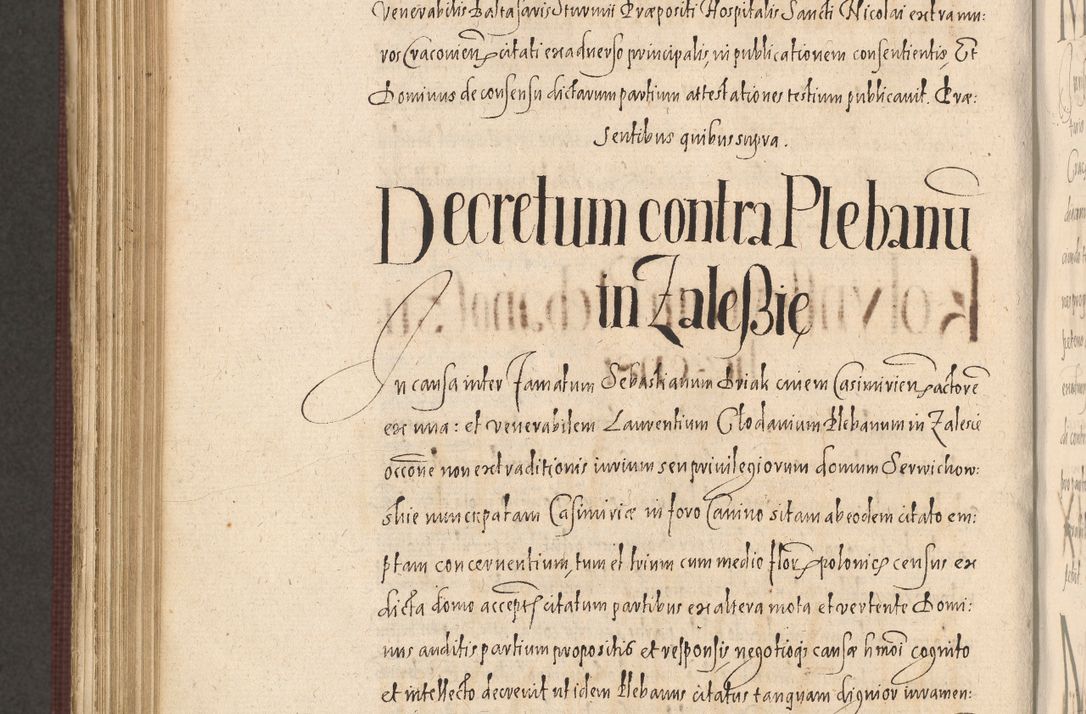 Venerabilis Baltasaris Sturmii Præpositi Hospitalis Sancti Nicolai extra mu:
ros Cracovien citati ex adverso principalis, in publicationem consentientis, Et
Dominus de consensu dictarum partium attestationes testium publicavit. Præ:
sentibus quibus supra.
Decretum contra Plebanū
in Zaleßię
In causa inter Famatum Sebastianum Briak civem Casimirien actorē
ex una: et venerabilem Laurentium Clodavium Plebanum in Zalesie
occōne non extraditionis iurium seu privilegiorum domum Serwichow:
skie nuncupatam Casimiriæ in foro Canino sitam ab eodem citato em:
ptam concernentium, tum et trium cum medio flor polonic census ex
dicta domo accept citatum partibus ex altera mota et vertente Domi:
nus auditis partium propositis et responsis negotioq causæ hmōi cognito
et intellecto decrevit ut idem Plebanus citatus tanquam dignior iuramen: